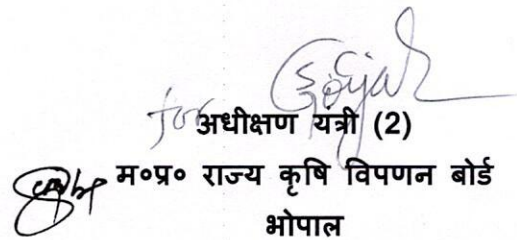 for
अधीक्षण यंत्री (2)
म०प्र० राज्य कृषि विपणन बोर्ड
भोपाल